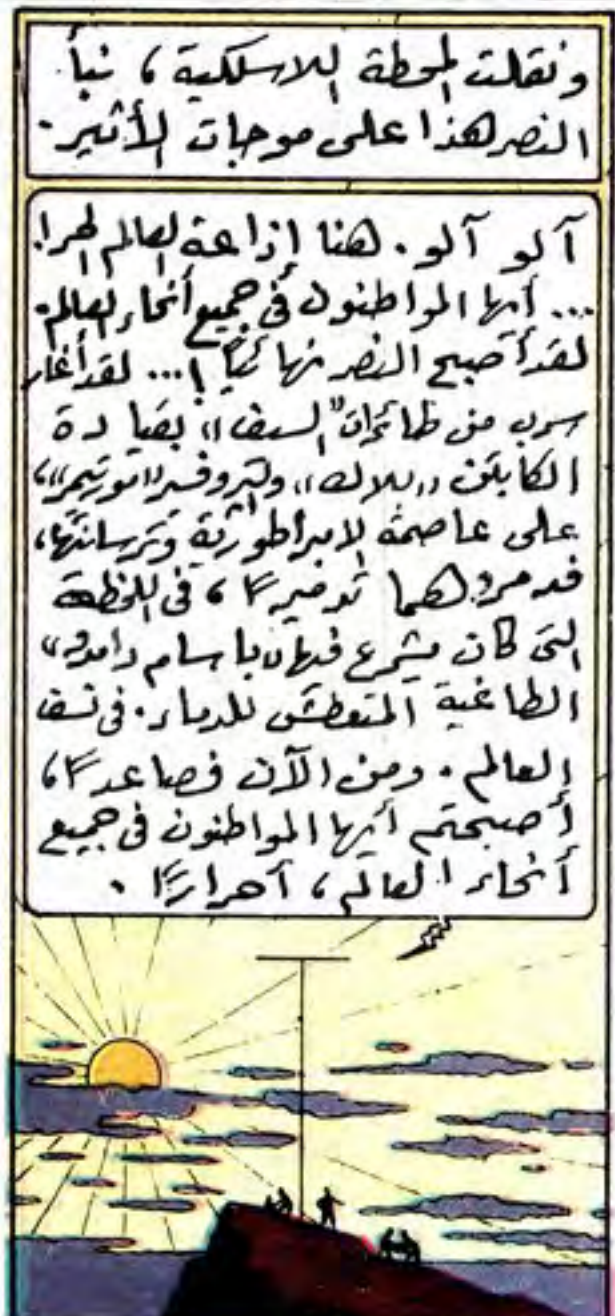 ونقلت المحطة اللاسلكية، نبأ
النصر هذا على موجات الأثير.
آلو آلو. هنا إذاعة العالم الحر!
... أيها المواطنون في جميع أنحاء العالم.
لقد أصبح النصر نهائيًا !... لقد أغار
سرب من طائرات "السيف" بقيادة
الكابتن "بلاك"، والبروفسر "مورتيمر"،
على عاصمة الامبراطورية وترسانتها،
فدمروهما تدميرًا، في اللحظة
التي كان يشرع فيها "باسام دامدو"
الطاغية المتعطش للدماء. في نسف
العالم. ومن الآن فصاعدًا،
أصبحتم أيها المواطنون في جميع
أنحاء العالم، أحرارًا.